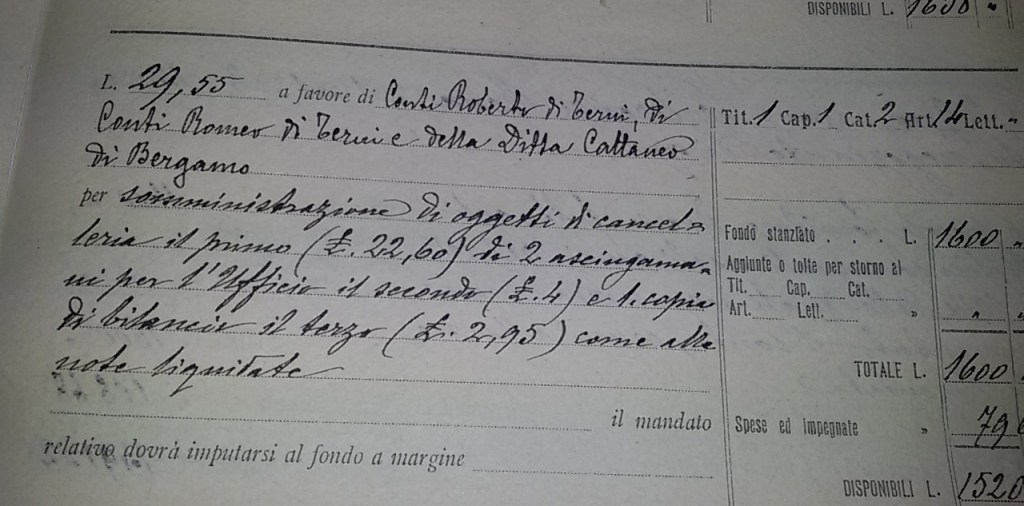 DISPONIBILI L. 1600 "
L. 29,55 a favore di Conti Roberto di Terni, di
Conti Romeo di Terni e della Ditta Cattaneo
di Bergamo
per somministrazione di oggetti di cancel-
leria il primo (£. 22,60) di 2 asciugama-
ni per l'Ufficio il secondo (£. 4) e 1. copia
di bilancio il terzo (£. 2,95) come alle
note liquidate
il mandato
relativo dovrà imputarsi al fondo a margine
Tit. 1 Cap. 1 Cat. 2 Art. 14 Lett. "
Fondo stanziato . . . L. 1600 "
Aggiunte o tolte per storno al
Tit. Cap. Cat.
Art. Lett. » " "
TOTALE L. 1600 "
Spese ed impegnate » 79
DISPONIBILI L. 1520